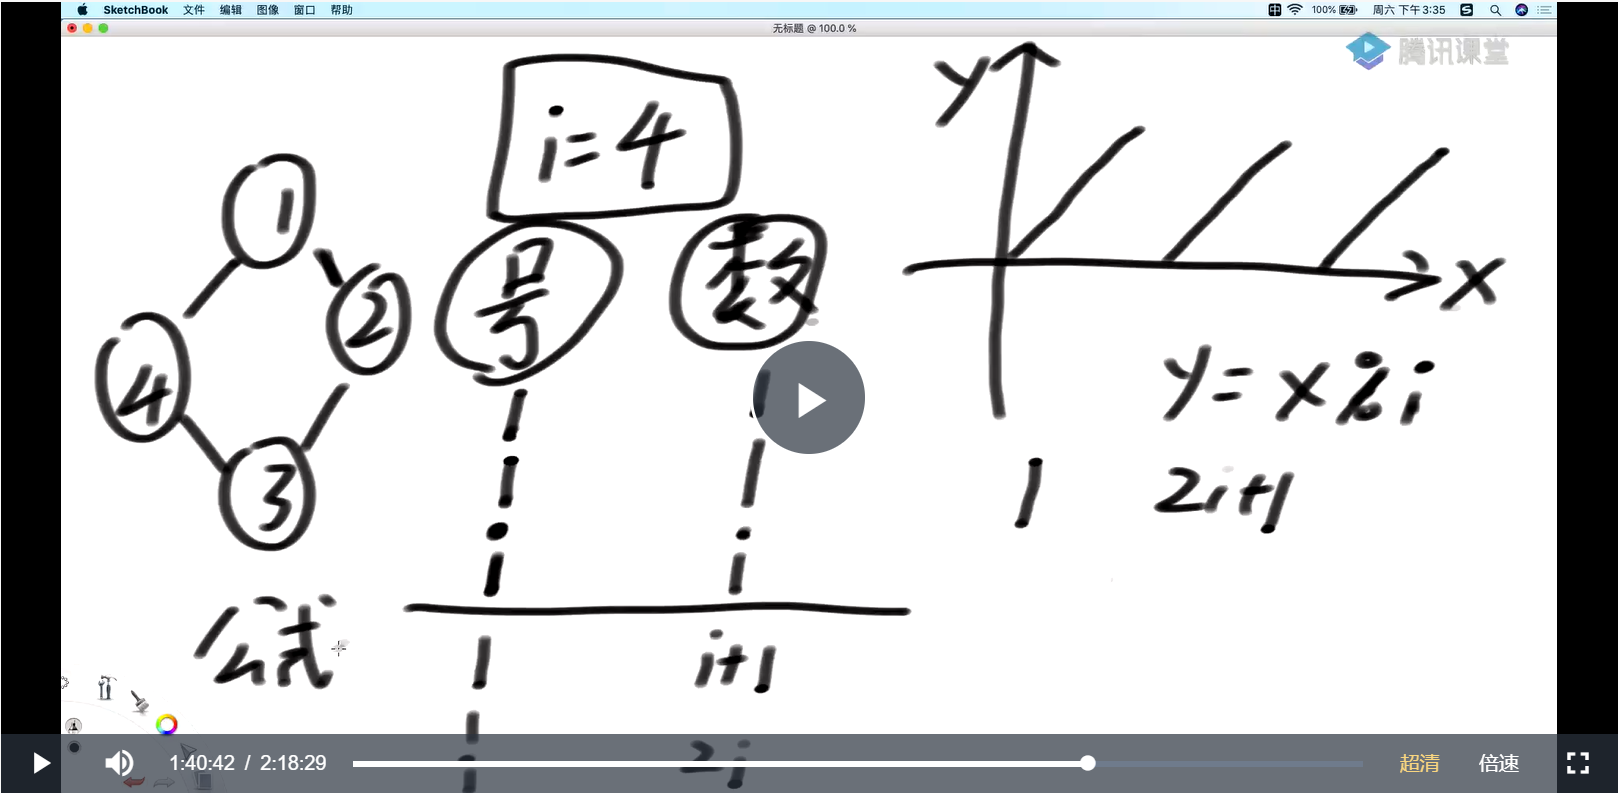 SketchBook 文件 编辑 图像 窗口 帮助
100% 周六 下午3:35
无标题 @ 100.0 %
腾讯课堂
i=4
y
x
1
2
3
4
号 数
y=x%i
1 2i+1
公式
1 i+1
2i
1:40:42 / 2:18:29
超清 倍速